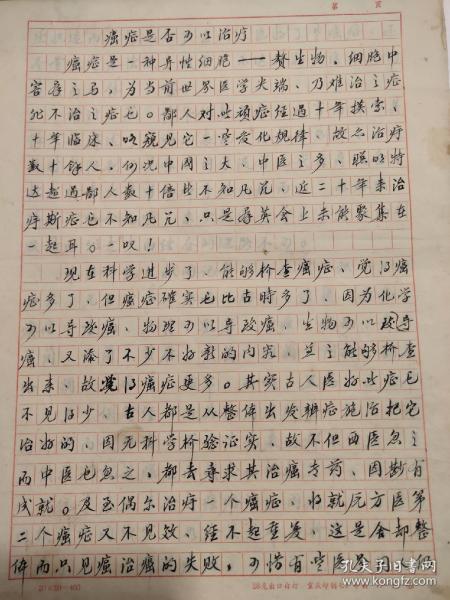 第 页
癌症是否可以治疗
癌症是一种异性细胞——赘生物、细胞中
害群之马，为当前世界医学尖端、乃难治之症
非不治之症也。鄙人对此顽症经过十年摸索、
十年临床、略窥见它一些变化规律、故尔治疗
数十馀人。何况中国之大、中医之多、聪明特
达超过鄙人数十倍些不知凡几，近二十年来治
疗斯症也不知凡几、只是群英会上未能聚集在
一起耳。一叹！
现在科学进步了、能够检查癌症、觉得癌
症多了、但癌症确实也比古時多了、因为化学
可以导致癌、物理可以导致癌、生物可以导
癌、又添了不少不好新的内容、兼之能够检查
出来、故觉得癌症更多。其实古人医好此症也
不见得少、古人都是从整体出发辨症施治把它
治好的、因无科学检验证实、故不但西医忽之
而中医也忽之、都去寻求其治癌专药、因鲜有
成就。及至偶尔治疗一个癌症、好就原方医第
二个癌症又不见效、经不起重复、这是舍却整
体而只见癌治癌的失败。可惜有些医
20×20=400